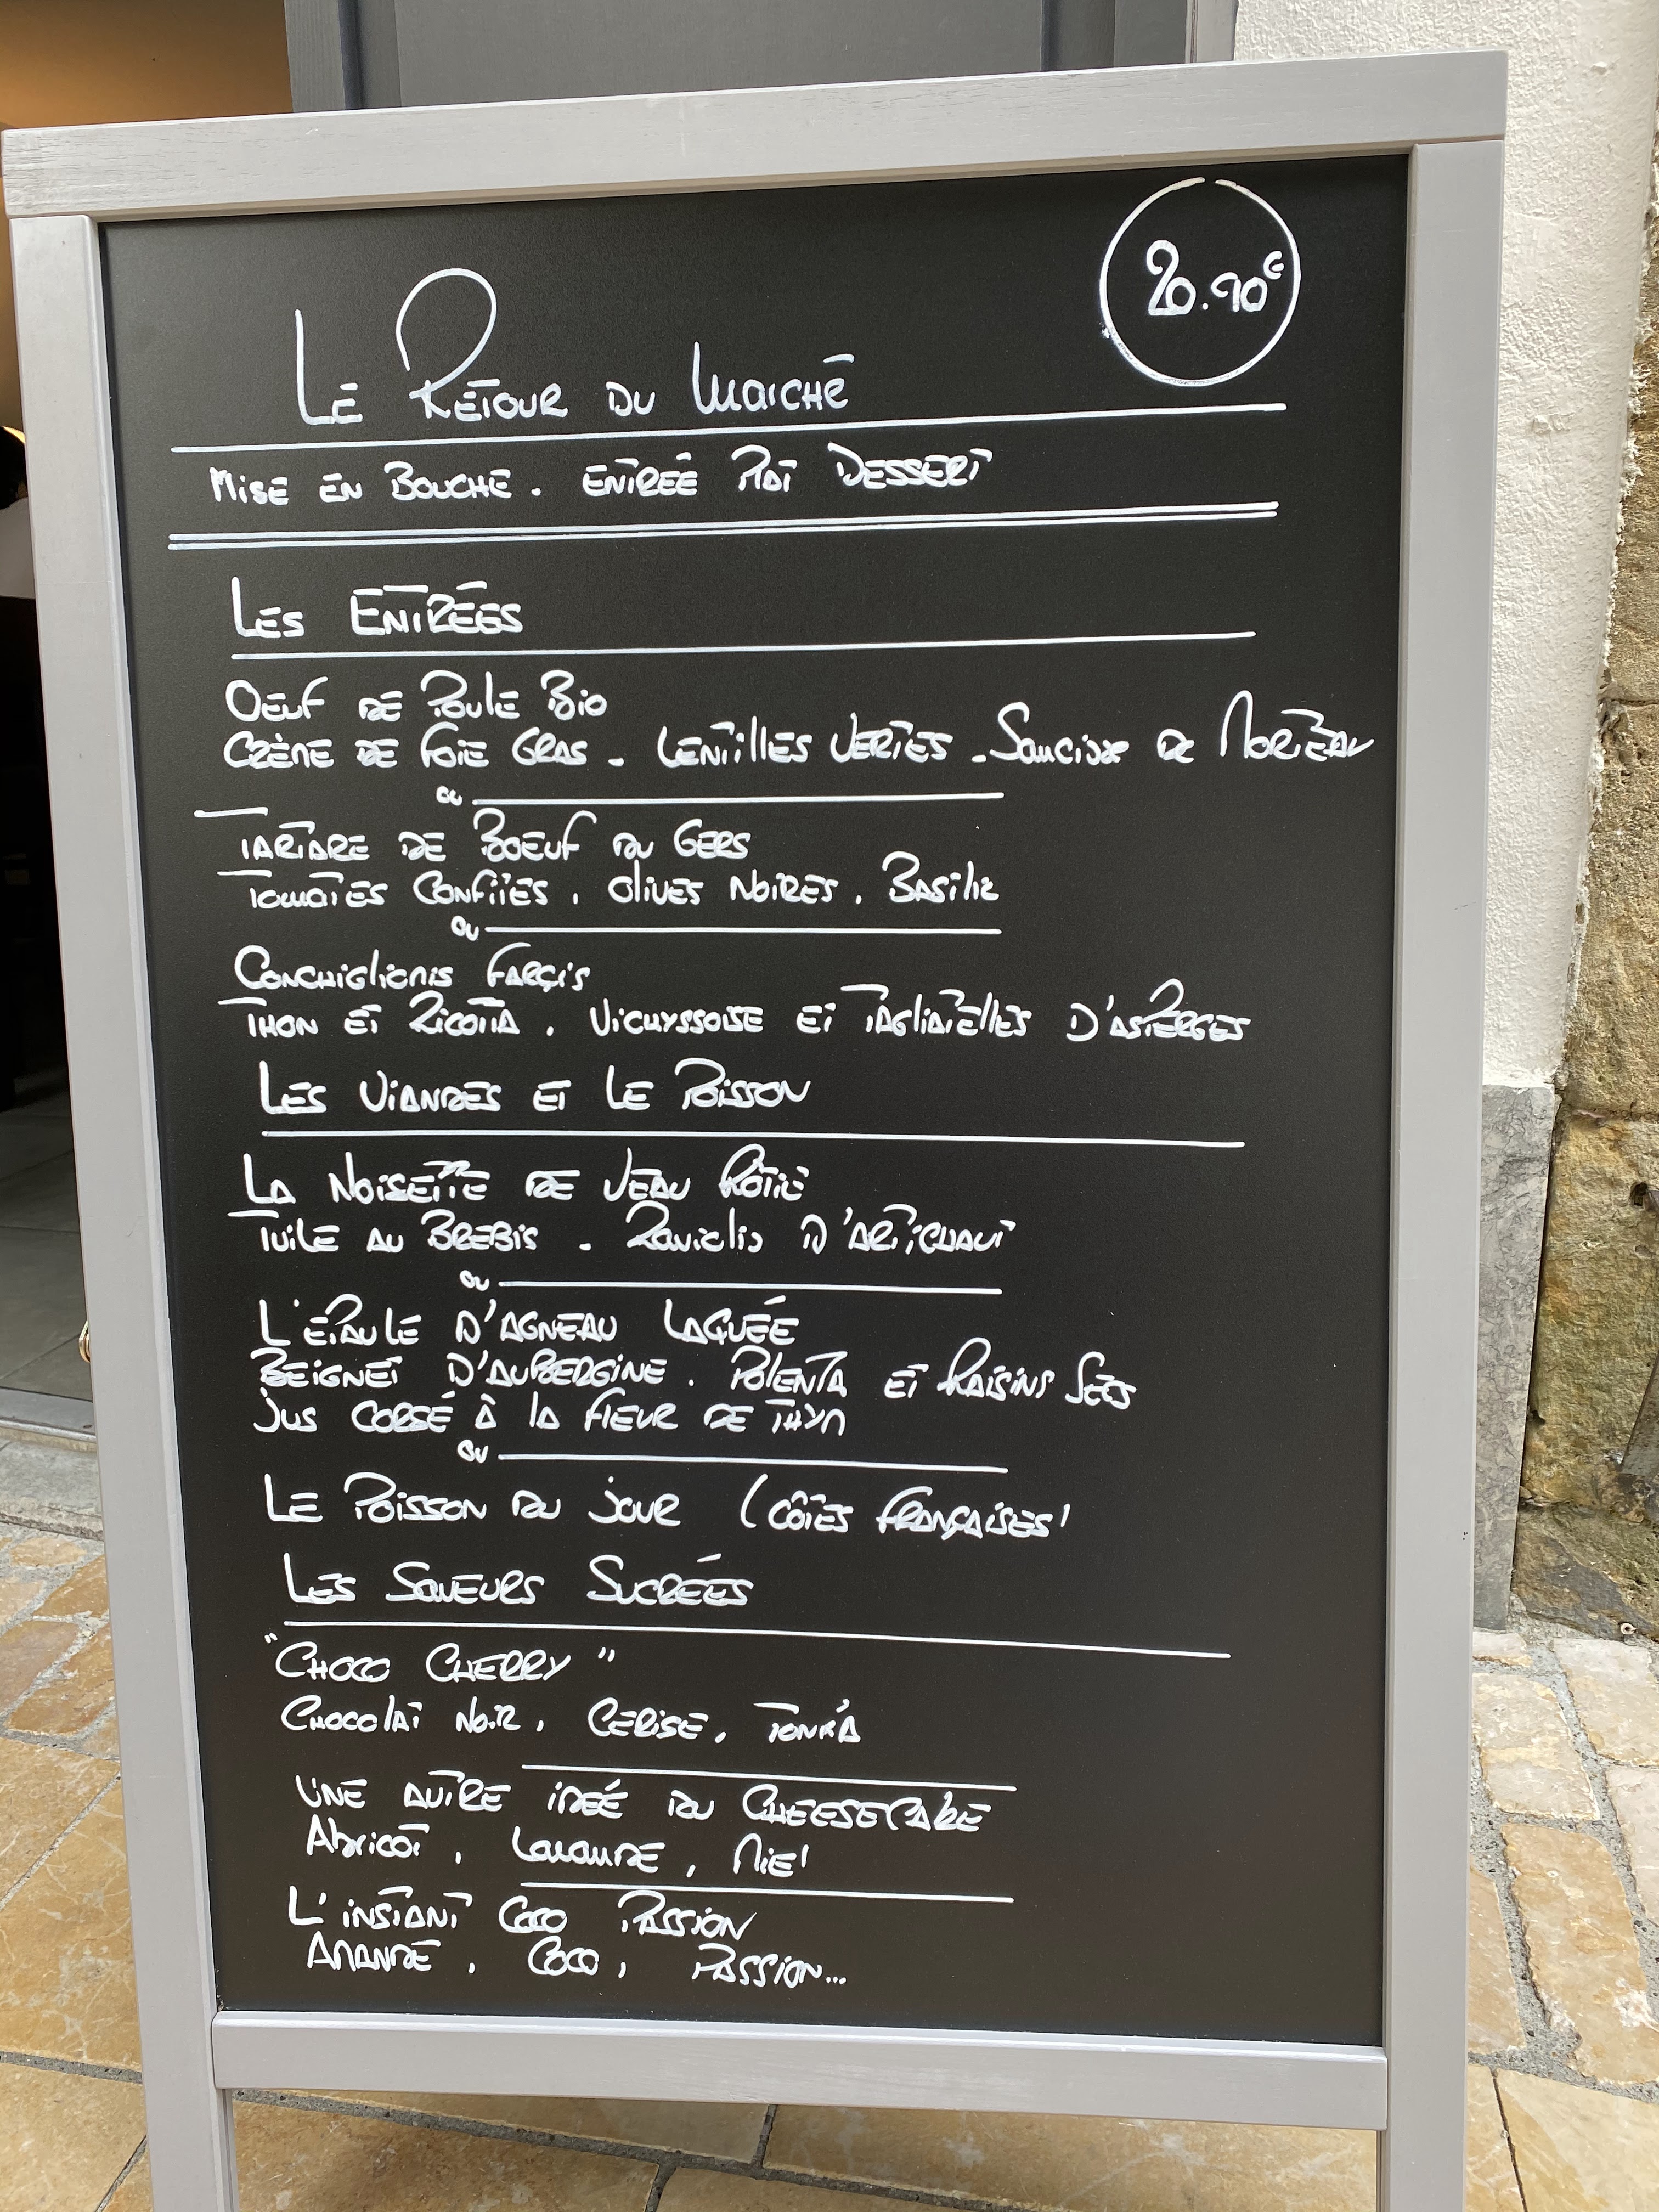 20.90€
Le Retour du Marché
Mise en Bouche. Entrée Plat Dessert
Les Entrées
Oeuf de Poule Bio
Crème de Foie Gras - Lentilles Vertes - Saucisse de Morteau
ou
Tartare de Boeuf du Gers
Tomates Confites, Olives Noires, Basilic
ou
Conchiglionis Farçis
Thon et Ricotta, Vichyssoise et Tagliatelles d'Asperges
Les Viandes et le Poisson
La Noisette de Veau Rôtie
Tuile au Brebis - Raviolis d'Artichaut
ou
L'épaule d'Agneau Laquée
Beignet d'Aubergine. Polenta et Raisins Secs
Jus Corsé à la Fleur de Thym
ou
Le Poisson du Jour (Côtes Françaises)
Les Saveurs Sucrées
"Choco Cherry"
Chocolat Noir, Cerise, Tonka
Une autre idée du Cheesecake
Abricot, Lavande, Miel
L'instant Coco Passion
Amande, Coco, Passion...